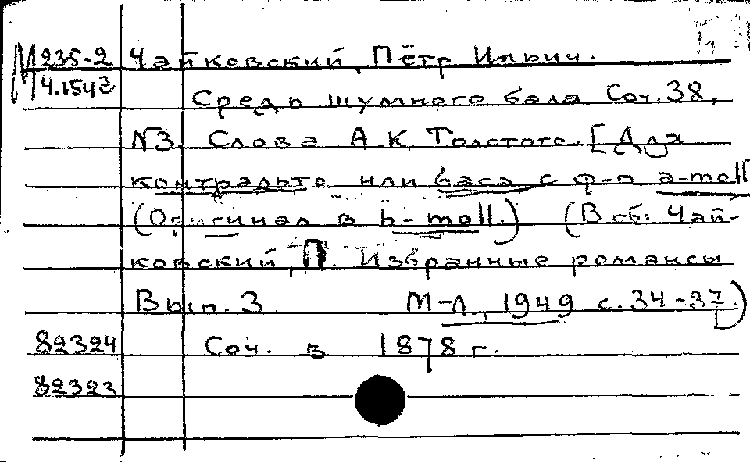 М 235-2 Чайковский, Пётр Ильич.
Ч.1542 Средь шумного бала Соч. 38,
N3. Слова А К. Толстого. [Для
контральто или баса с ф-п a-moll
(Оригинал в h-moll.) (В сб: Чай-
ковский, П. Избранные романсы
Вып. 3 М-Л., 1949 с. 34-37.)
82324 Соч. в 1878 г.
82323